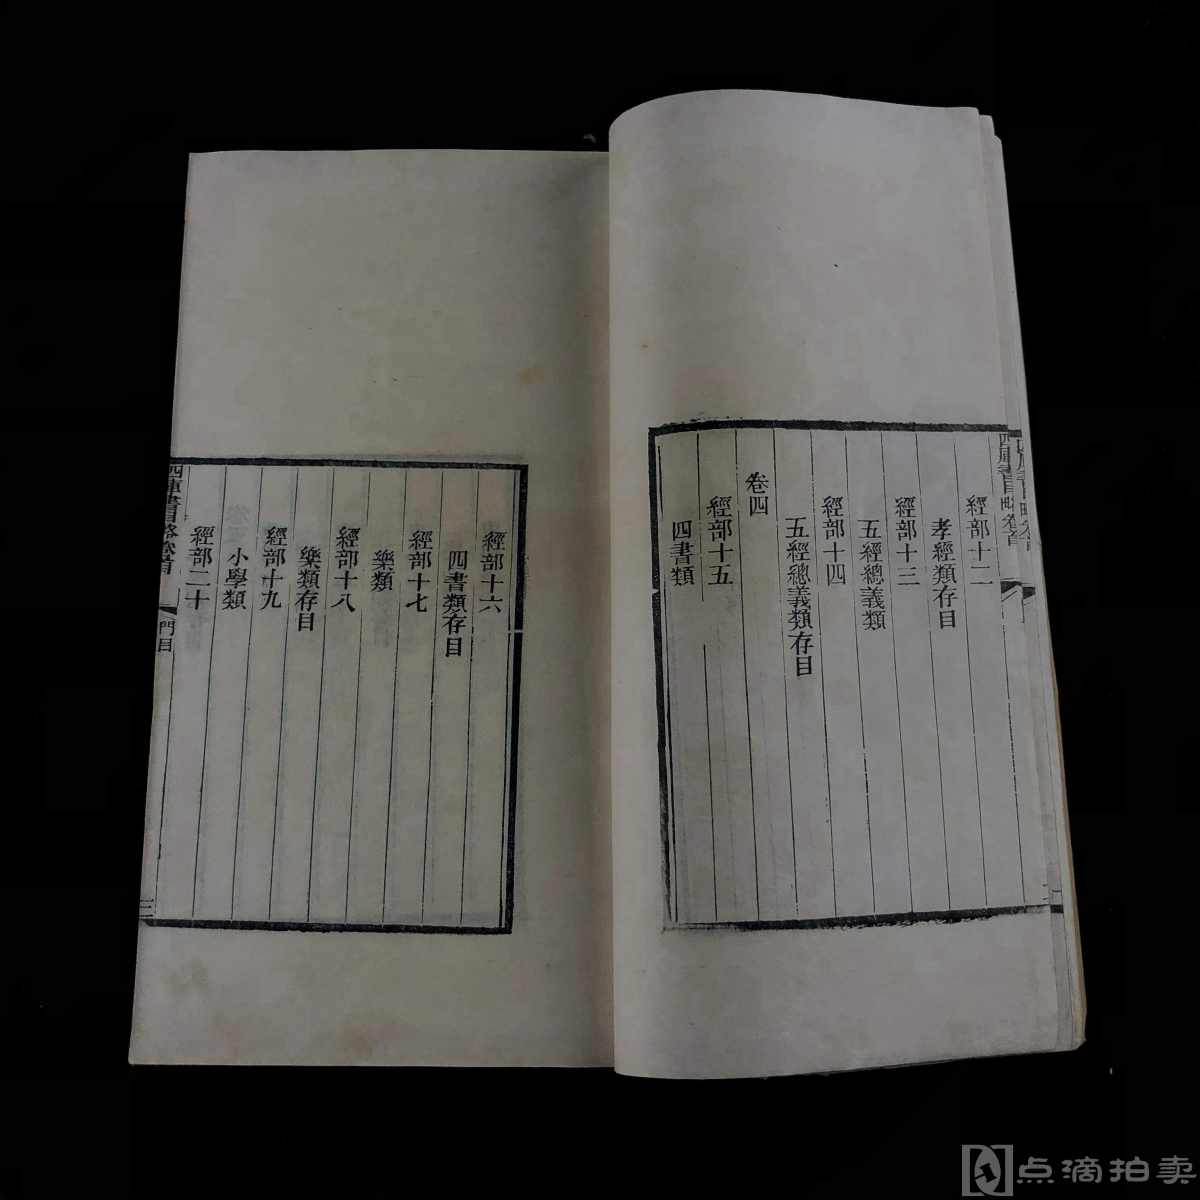 經部十二
孝經類存目
經部十三
五經總義類
經部十四
五經總義類存目
卷四
經部十五
四書類
經部十六
四書類存目
經部十七
樂類
經部十八
樂類存目
經部十九
小學類
經部二十
四庫書目略卷首
門目
三
点滴拍卖